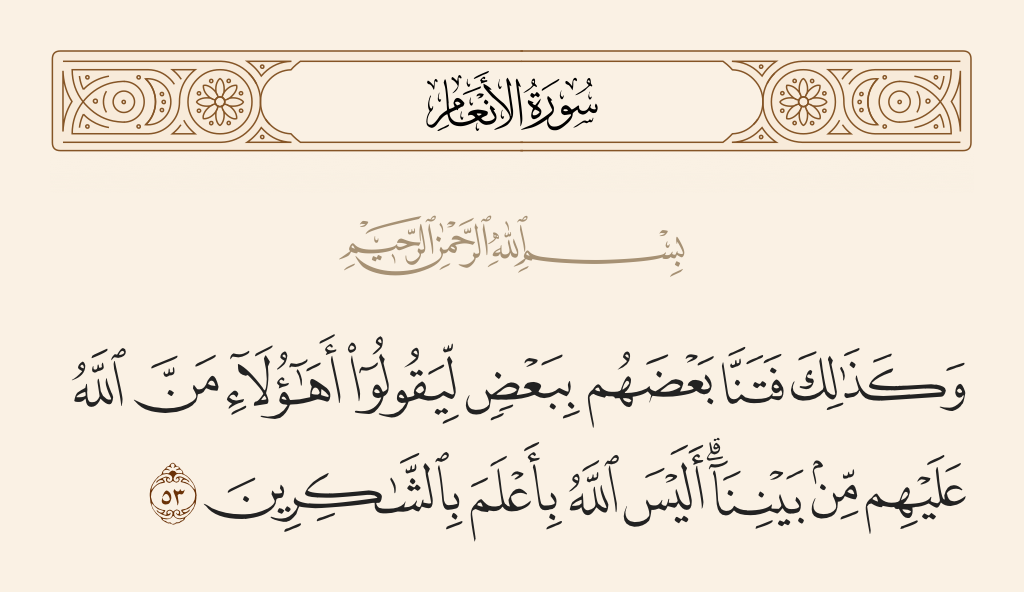 سُورَةُ الأَنْعَامِ
بِسْمِ ٱللَّهِ ٱلرَّحْمَٰنِ ٱلرَّحِيمِ
وَكَذَٰلِكَ فَتَنَّا بَعْضَهُم بِبَعْضٍ لِّيَقُولُوٓا۟ أَهَٰٓؤُلَآءِ مَنَّ ٱللَّهُ
عَلَيْهِم مِّنۢ بَيْنِنَآ ۗ أَلَيْسَ ٱللَّهُ بِأَعْلَمَ بِٱلشَّٰكِرِينَ ٥٣